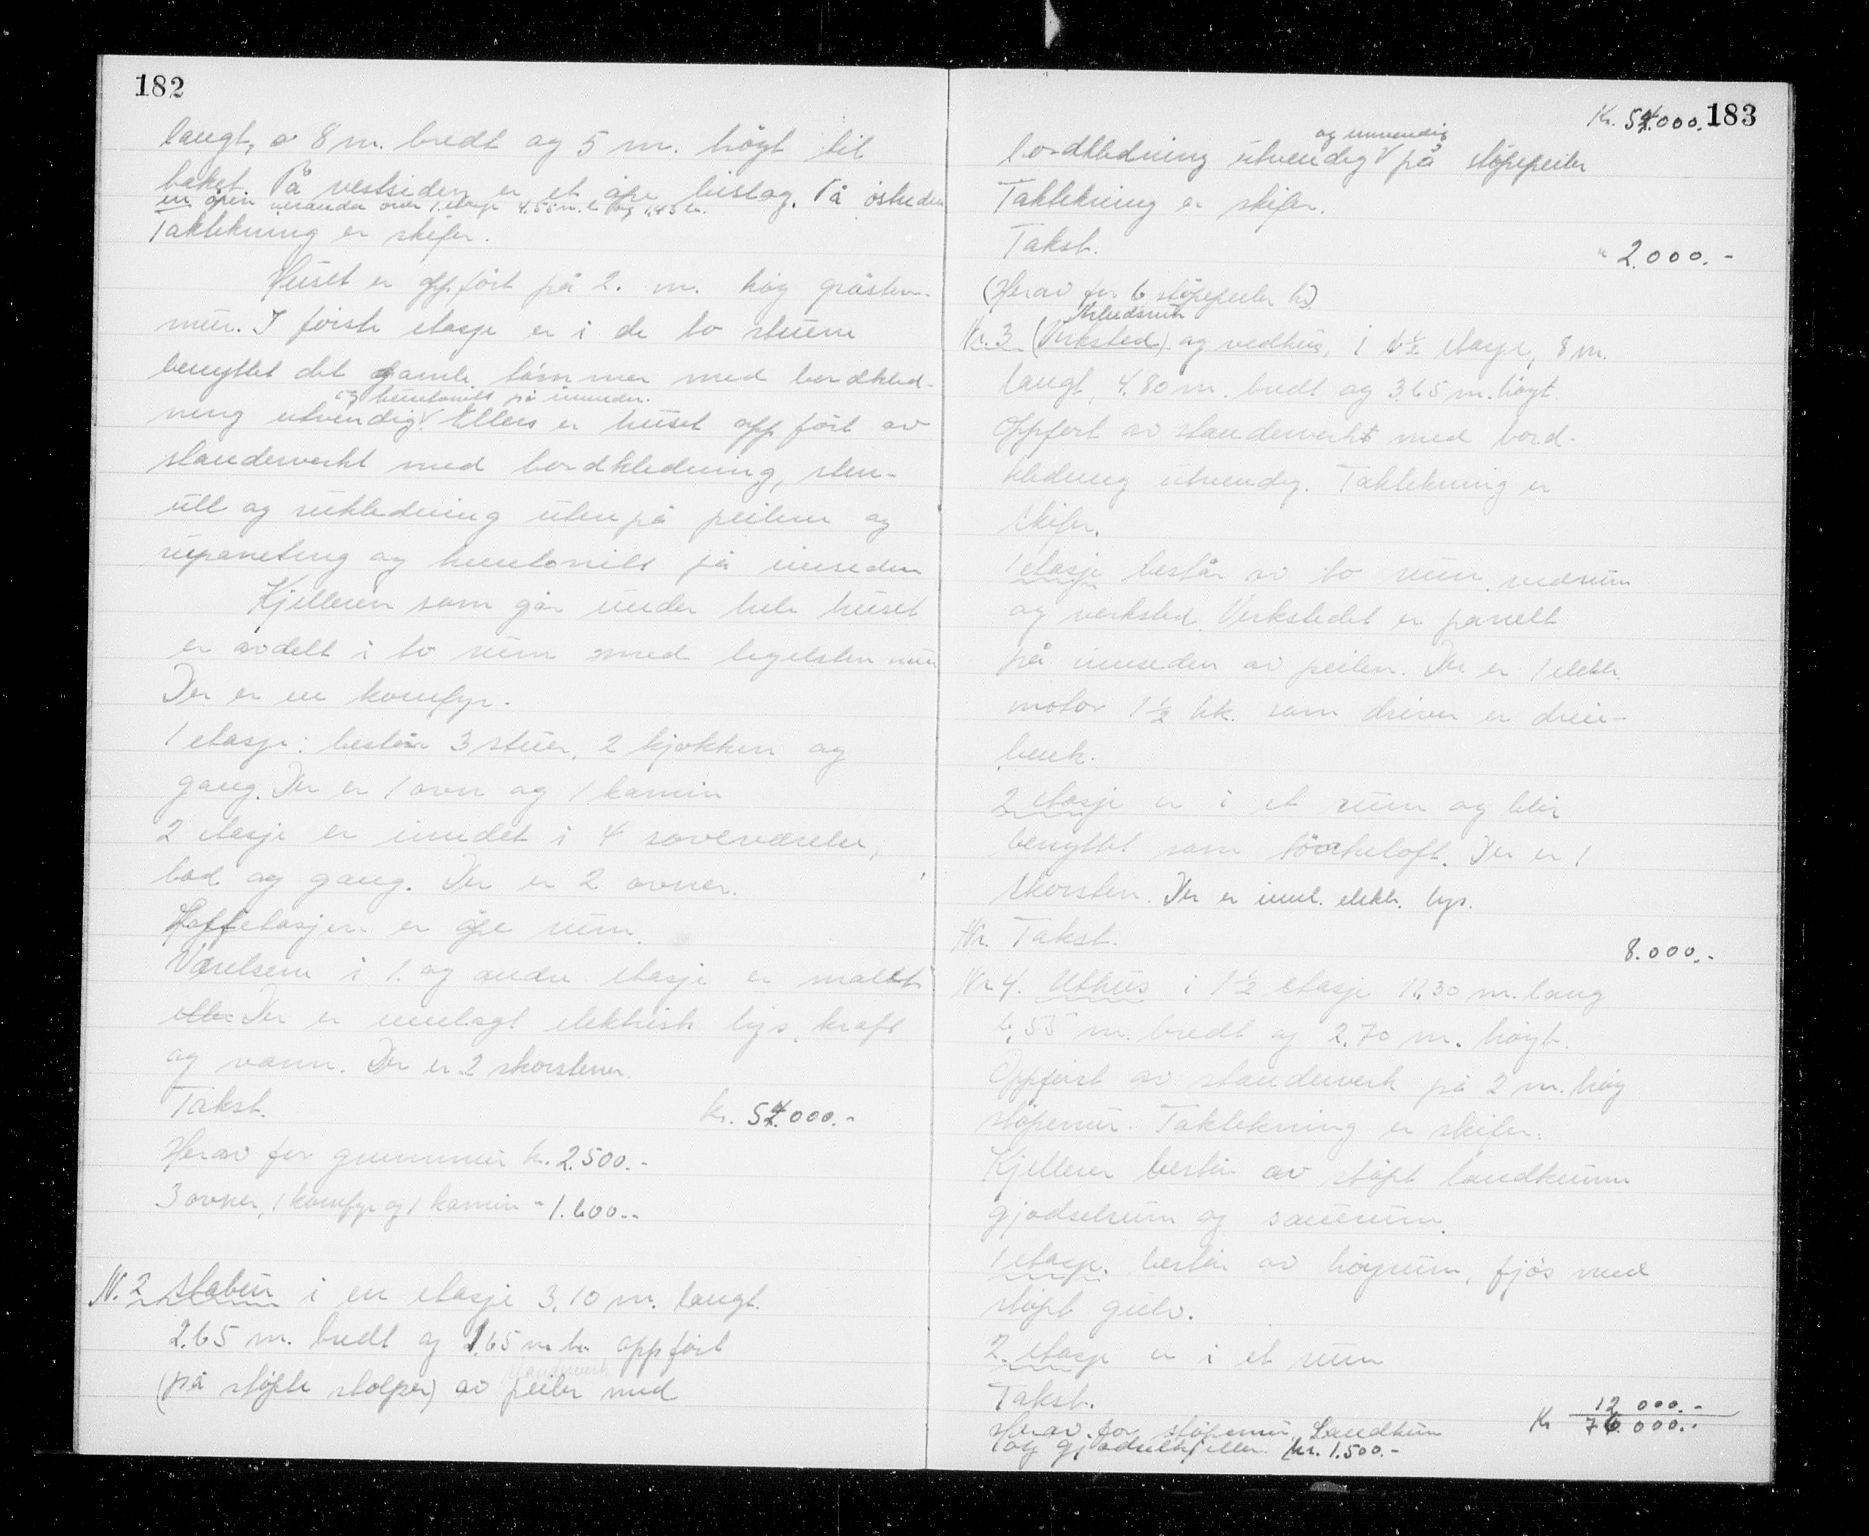 182
langt, 8 m. bredt og 5 m. höyt til
taket. På vestsiden er et åpe bislag. På östsiden
en åpen veranda over 1. etasje 4.55 m. l. og 1.45 br.
Taktekning er skifer.
Huset er oppfört på 2. m. høg gråsten-
mur. I förste etasje er i de to stuene
benyttet det gamle tömmer med bordkled-
og huntonitt på innsiden.
ning utvendig. Ellers er huset oppfört av
standerverkt med bordkledning, sten-
ull og rukledning utenpå peilene og
rupaneling og huntonitt på innsiden
Kjelleren som går under hele huset
er avdelt i to rum med teglsten mur
Der er en komfyr.
1 etasje: består 3 stuer, 2 kjøkken og
gang. Der er 1 ovn og 1 kamin
2 etasje er inndet i 4 soveværelser,
bad og gang. Der er 2 ovner.
Loftetasjen er åpe rum.
Værelsene i 1. og andre etasje er malt
eller Der er innlagt elektrisk lys, kraft
og vann. Der er 2 skorstener.
Takst. kr. 54.000.-
Herav for grunnmur kr. 2.500.-
3 ovner, 1 komfyr og 1 kamin " 1.600.-
Nr. 2 Stabur i en etasje 3,10 m. langt.
2.65 m. bredt og 1.65 m. h. oppfört
standerverk
(på støpte stolper) av peiler med
183
Kr. 54.000.
og innvendig
bordkledning utvendig V på støpepeiler
Taktekning er skifer.
Takst. " 2.000.-
(Herav for 6 støpepeiler kr)
Arbeidsrum
Nr. 3 (Verksted) og vedhus, i 1½ etasje, 8 m.
langt, 4.80 m. bredt og 3.65 m. höyt.
Oppfört av standerverkt med bord-
kledning utvendig. Taktekning er
skifer.
1 etasje består av to rum, vedrum
og verksted. Verkstedet er panelt
på innsiden av peilen. Der er 1 elektr.
motor 1½ hk. som driver en dreie-
benk.
2 etasje er i et rum og blir
benyttet som törkeloft. Der er 1
skorsten. Der er innl. elektr. lys.
Nr. Takst. 8.000.-
Nr 4. Uthus i 1½ etasje 11,30 m. lang
6,55 m. bredt og 2.70 m. höyt.
Oppfört av standerverk på 2 m. høy
støpemur. Taktekning er skifer.
Kjelleren består av støpt landkum
gjødselrum og sauerum.
1 etasje. består av høyrum, fjøs med
støpt gulv.
2. etasje er i et rum
Takst. 12 000.-
Herav for støpemur, Landkum Kr 76.000.-
og gjødselkjeller. kr. 1.500.-